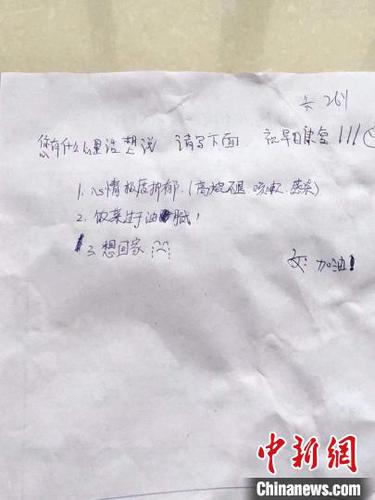 264
您有什么心里话想说 请写下面 祝早日康复!!!
1. 心情极度抑郁.(高烧不退 咳嗽
2. 饭菜过于油腻!
3. 想回家
加油!
中新网
Chinanews.com